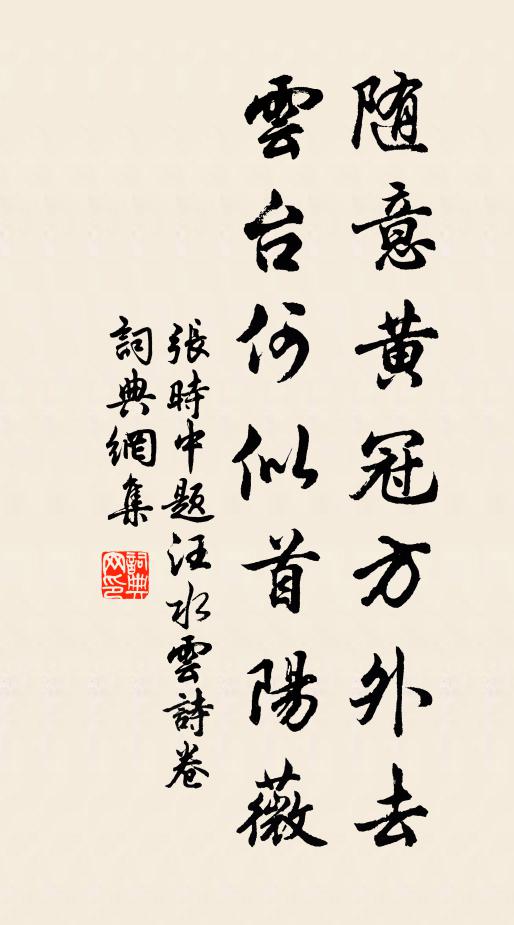 随意黄冠方外去
雲台何似首陽薇
張時中题汪水雲詩卷
詞典網集
詞典网印